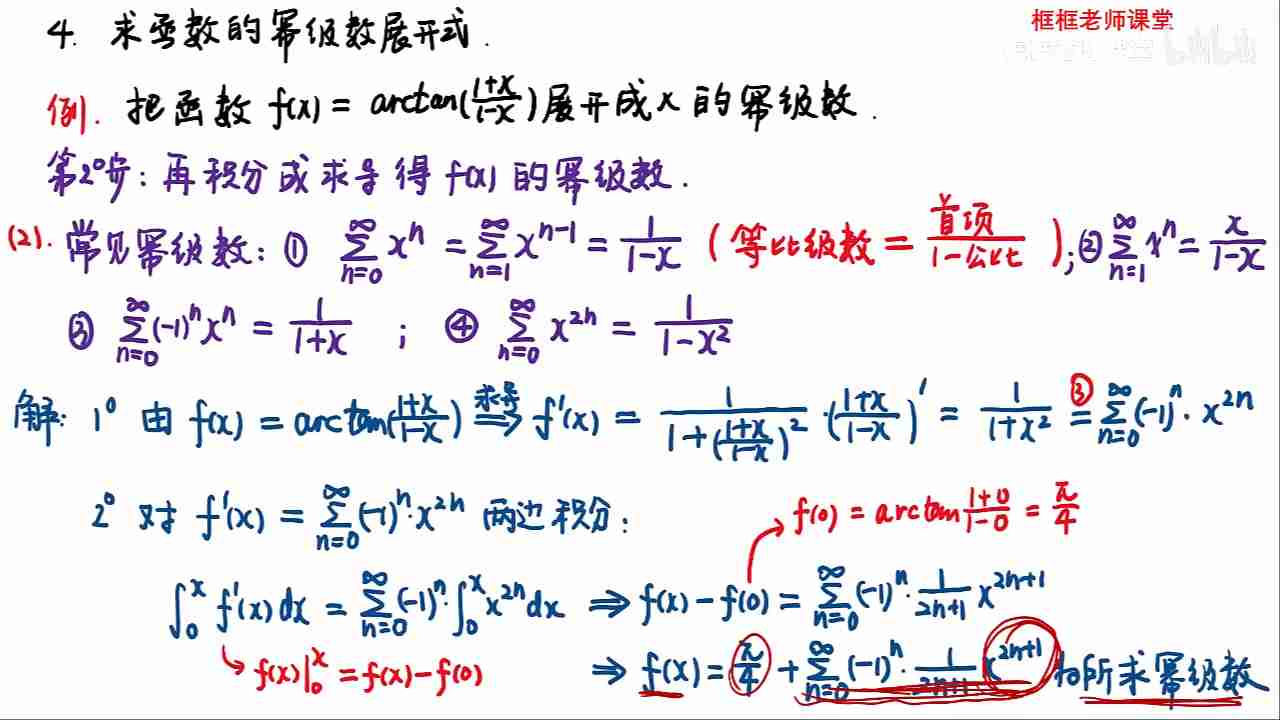 框框老师课堂
4. 求函数的幂级数展开式.
例. 把函数 f(x) = arctan(\frac{1+x}{1-x}) 展开成 x 的幂级数.
第2°步: 再积分或求导得 f(x) 的幂级数.
(2). 常见幂级数: ① \sum_{n=0}^{∞} x^n = \sum_{n=1}^{∞} x^{n-1} = \frac{1}{1-x} (等比级数 = \frac{首项}{1-公比}); ② \sum_{n=1}^{∞} x^n = \frac{x}{1-x}
③ \sum_{n=0}^{∞} (-1)^n x^n = \frac{1}{1+x} ; ④ \sum_{n=0}^{∞} x^{2n} = \frac{1}{1-x^2}
解: 1° 由 f(x) = arctan(\frac{1+x}{1-x}) \xRightarrow{求导} f'(x) = \frac{1}{1+(\frac{1+x}{1-x})^2} · (\frac{1+x}{1-x})' = \frac{1}{1+x^2} \overset{③}{=} \sum_{n=0}^{∞} (-1)^n · x^{2n}
2° 对 f'(x) = \sum_{n=0}^{∞} (-1)^n · x^{2n} 两边积分:
f(0) = arctan \frac{1+0}{1-0} = \frac{π}{4}
\int_0^x f'(x) dx = \sum_{n=0}^{∞} (-1)^n · \int_0^x x^{2n} dx ⇒ f(x) - f(0) = \sum_{n=0}^{∞} (-1)^n · \frac{1}{2n+1} x^{2n+1}
↳ f(x)|_0^x = f(x) - f(0)
⇒ f(x) = \frac{π}{4} + \sum_{n=0}^{∞} (-1)^n · \frac{1}{2n+1} x^{2n+1} 为所求幂级数